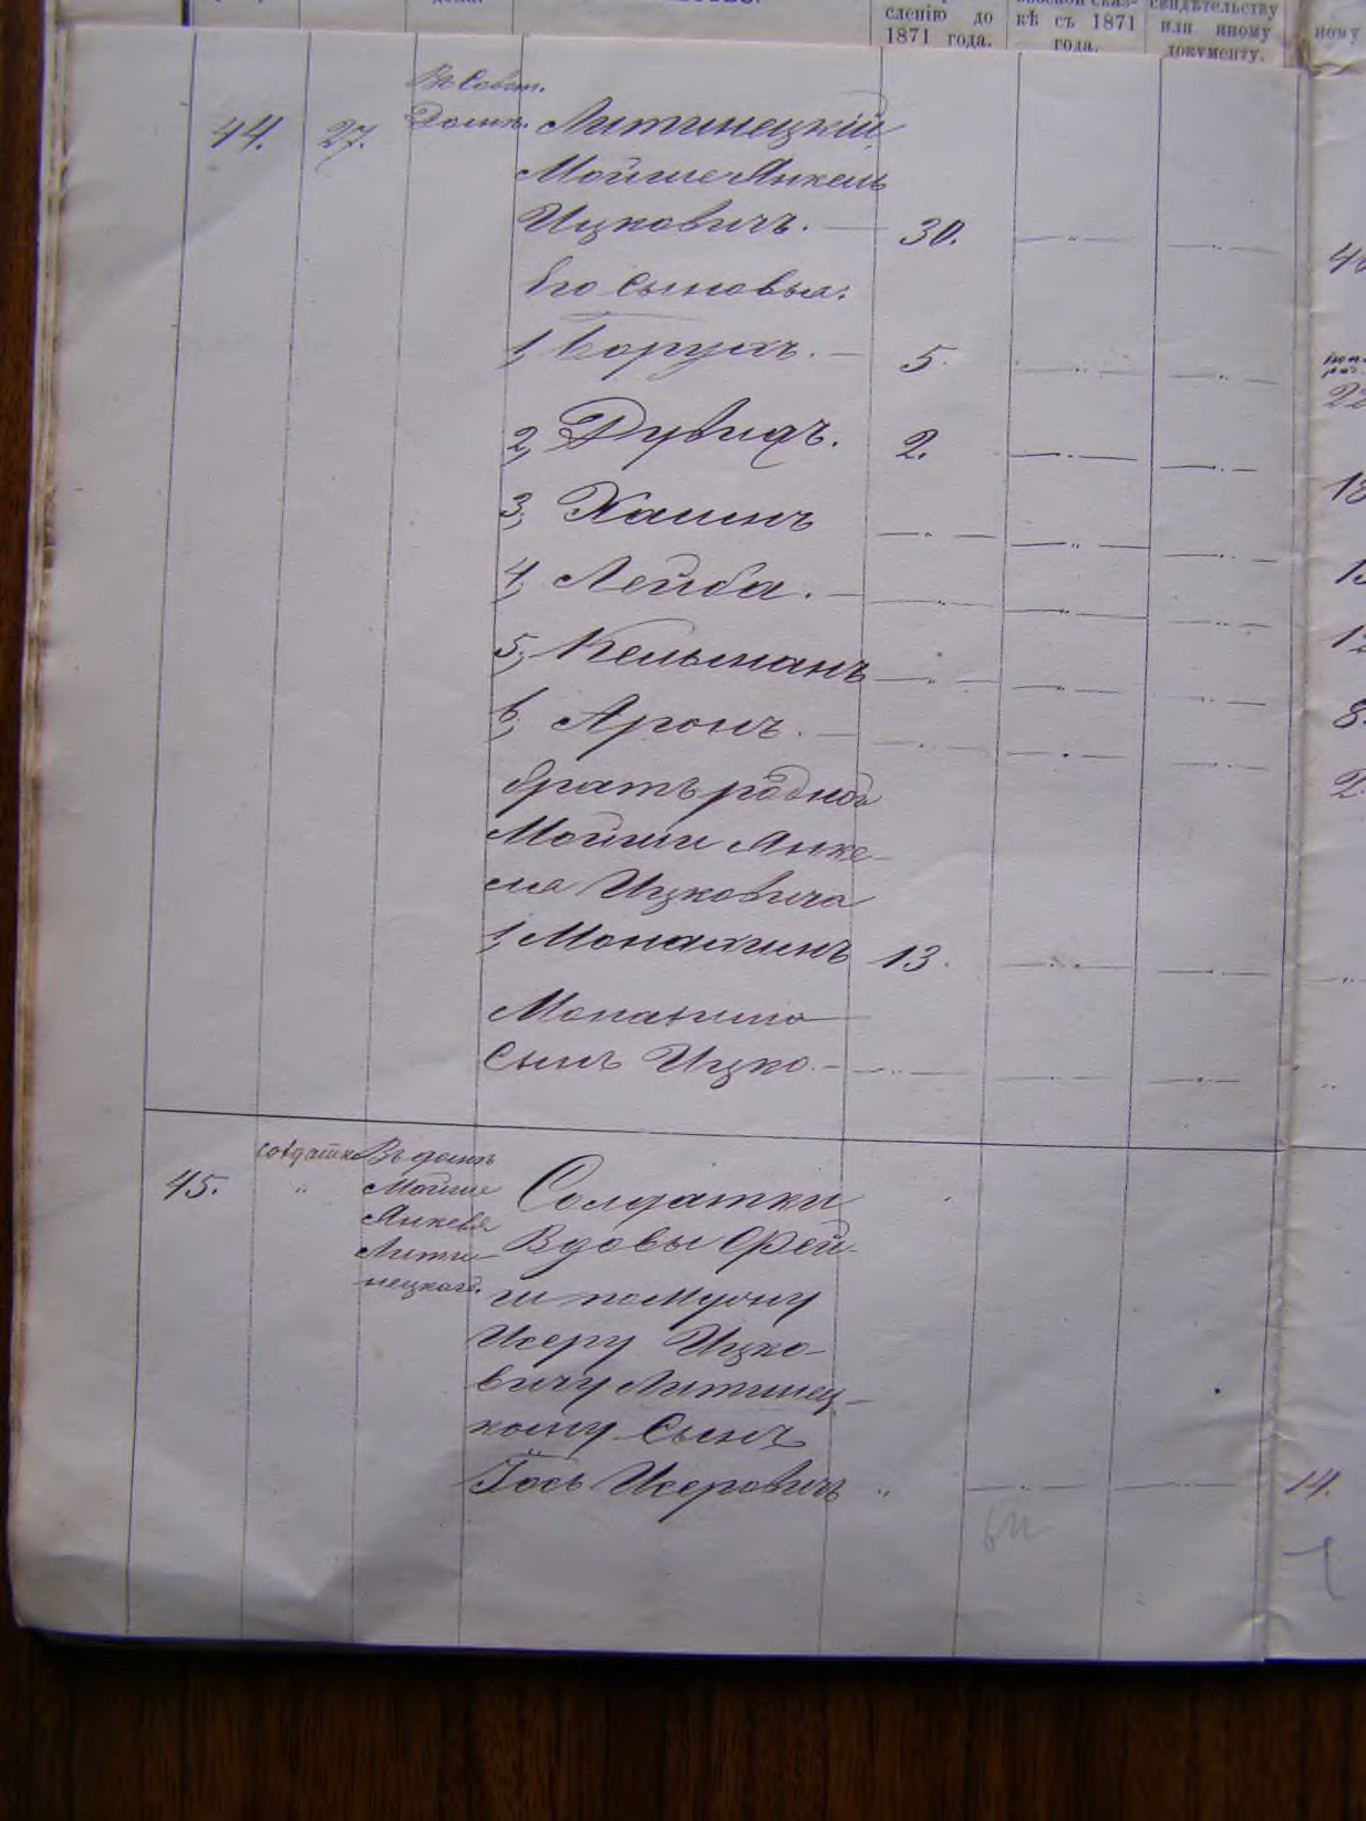 сленію до
1871 года.
кѣ съ 1871
года.
свидѣтельству
или иному
документу.
ному
44. 27. Въ Собст.
Домѣ. Литинецкій
Мойше Янкель
Ицковичъ. 30.
Его сыновья:
1, Борухъ. 5.
2, Дувидъ. 2.
3, Хаимъ
4, Лейба.
5, Кельманъ
6, Аронъ.
братъ родной
Мойши Янке-
ля Ицковича
1, Монашимъ 13.
Монашима
Сынъ Ицко.
45. солдатка Въ домѣ
Мойше
Янкеля
Лити-
нецкаго.
Солдатки
Вдовы Фей-
ги по мужу
Исеру Ицко-
вичу Литинец-
кому Сынъ
Іось Исеровичъ 14.